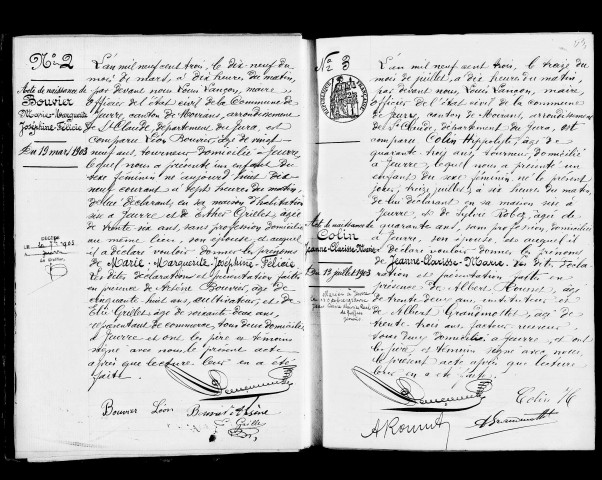 N° 2
Acte de naissance de
Bouvier
Marie-Marguerite
Joséphine-Félicie
Du 19 mars 1903
L'an mil neuf cent trois, le dix-neuf du
mois de mars, à dix heures du matin,
par devant nous Louis Lançon, maire
officier de l'état civil de la Commune de
Jeurre, canton de Moirans, arrondissement
de St Claude, département du Jura, est
comparu Léon Bouvier, âgé de vingt
neuf ans, tourneur domicilié à Jeurre,
lequel nous a présenté un enfant du
sexe féminin né aujourd'huit dix
neuf courant à sept heures du matin,
de lui déclarant, en sa maison d'habitation
sise à Jeurre et de Esther Grillet, âgée
de trente six ans, sans profession domiciliée
au même lieu, son épouse et auquel
il a déclaré vouloir donner les prénoms
de Marie-Marguerite Joséphine-Félicie
Les dites déclaration et présentation faites
en présence de Arsène Bouvier, âgé de
cinquante huit ans, cultivateur, et de
Elie Grillet âgé de soixante deux ans,
représentant de commerce, tous deux domiciliés
à Jeurre et ont les père et témoins
signé avec nous le présent acte
après que lecture leur en a été
faite.
Bouvier Léon Bouvier Arsène
E Grillet
N° 3
Acte de naissance de
Colin
Jeanne-Clarisse-Marie
Du 13 juillet 1903
L'an mil neuf cent trois, le treize du
mois de juillet, à dix heures du matin,
par devant nous, Louis Lançon, maire,
officier de l'état civil de la commune
de Jeurre, canton de Moirans, arrondissement
de St Claude, département du Jura, est
comparu Colin Hippolyte, âgé de
quarante trois ans, tourneur, domicilié
à Jeurre, lequel nous a présenté un
enfant du sexe féminin, né le présent
jour, treize juillet, à six heures du matin,
de lui déclarant en sa maison sise à
Jeurre, et de Sylvie Robez, âgée de
quarante ans, sans profession, domiciliée
à Jeurre, son épouse, et auquel il
a déclaré vouloir donner les prénoms
de Jeanne-Clarisse-Marie. Les dites déclara
tion et présentation faites en
présence de Albert Rounet, âgé
de trente deux ans, instituteur et
de Albert Grandmottet, âgé de
trente trois ans, facteur receveur,
tous deux domiciliés à Jeurre, et ont
les père et témoins signé avec nous
le présent acte après que lecture
leur en a été faite.
Colin H